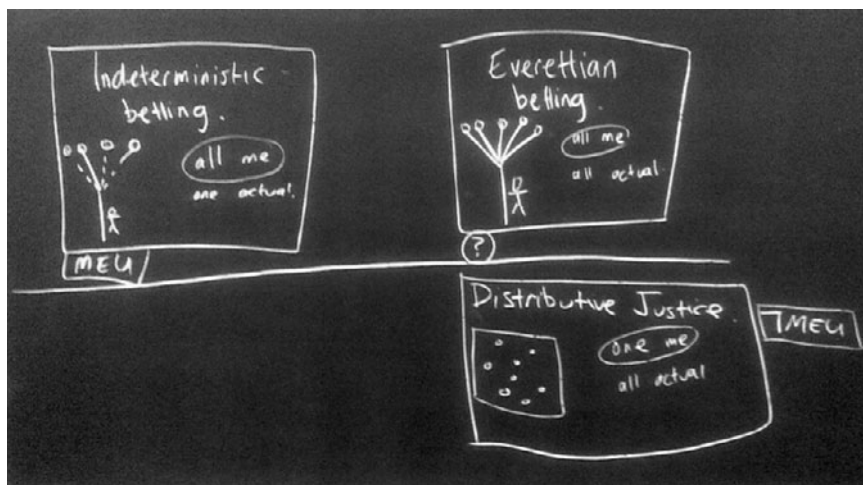 Indeterministic
betting.
all me
one actual.
MEU
Everettian
betting.
all me
all actual.
?
Distributive Justice.
one me
all actual
¬MEU